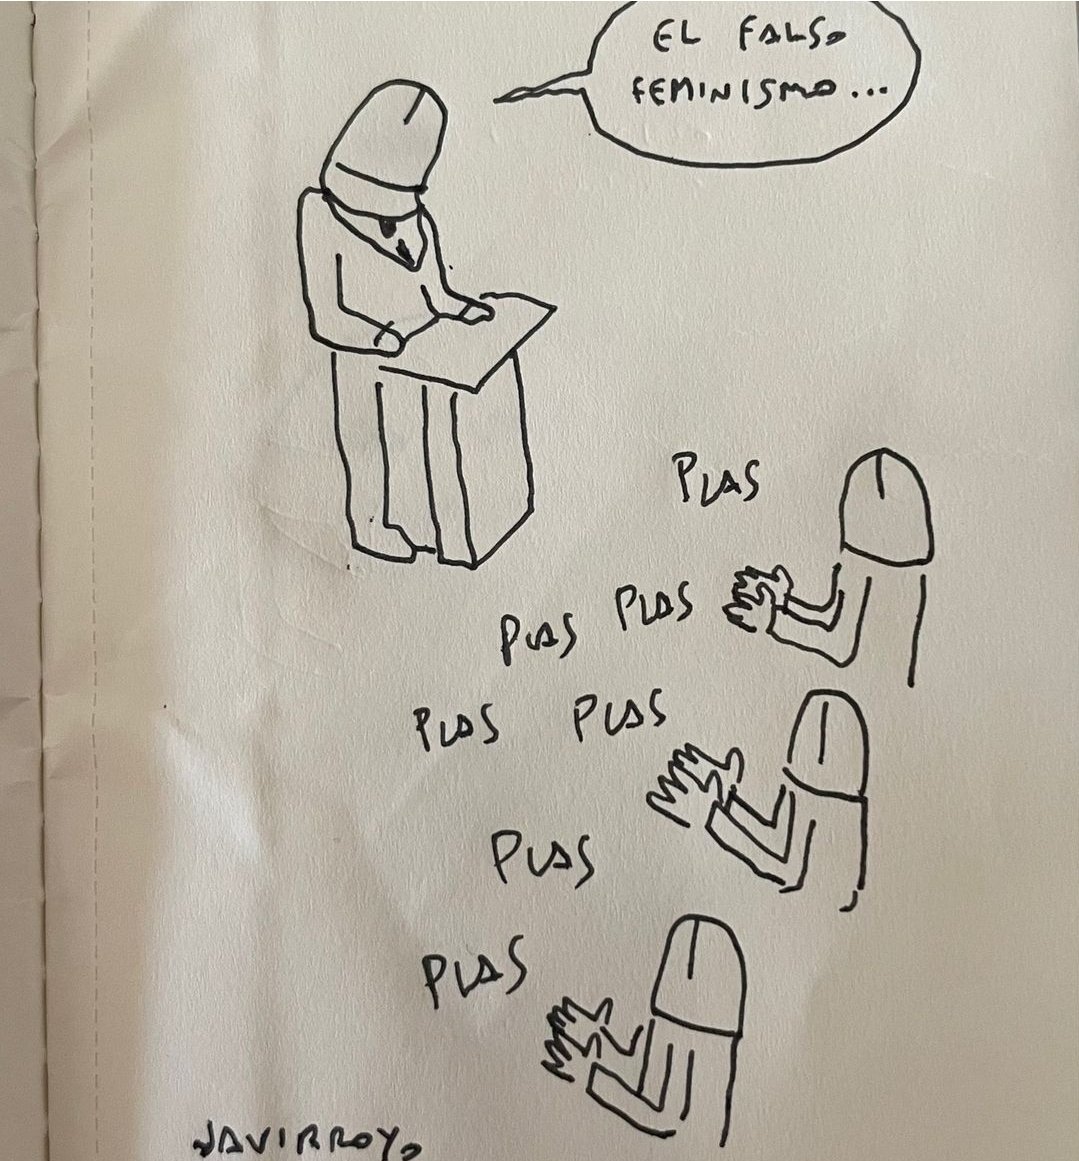 EL FALSO
FEMINISMO...
PLAS
PLAS PLAS
PLAS PLAS
PLAS
PLAS
JAVIRROYO